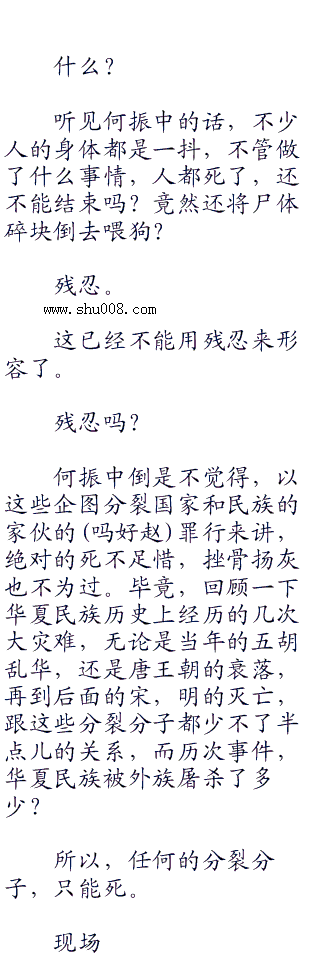 什么？
听见何振中的话，不少
人的身体都是一抖，不管做
了什么事情，人都死了，还
不能结束吗？竟然还将尸体
碎块倒去喂狗？
残忍。
www.shu008.com
这已经不能用残忍来形
容了。
残忍吗？
何振中倒是不觉得，以
这些企图分裂国家和民族的
家伙的(吗好赵)罪行来讲，
绝对的死不足惜，挫骨扬灰
也不为过。毕竟，回顾一下
华夏民族历史上经历的几次
大灾难，无论是当年的五胡
乱华，还是唐王朝的衰落，
再到后面的宋，明的灭亡，
跟这些分裂分子都少不了半
点儿的关系，而历次事件，
华夏民族被外族屠杀了多
少？
所以，任何的分裂分
子，只能死。
现场